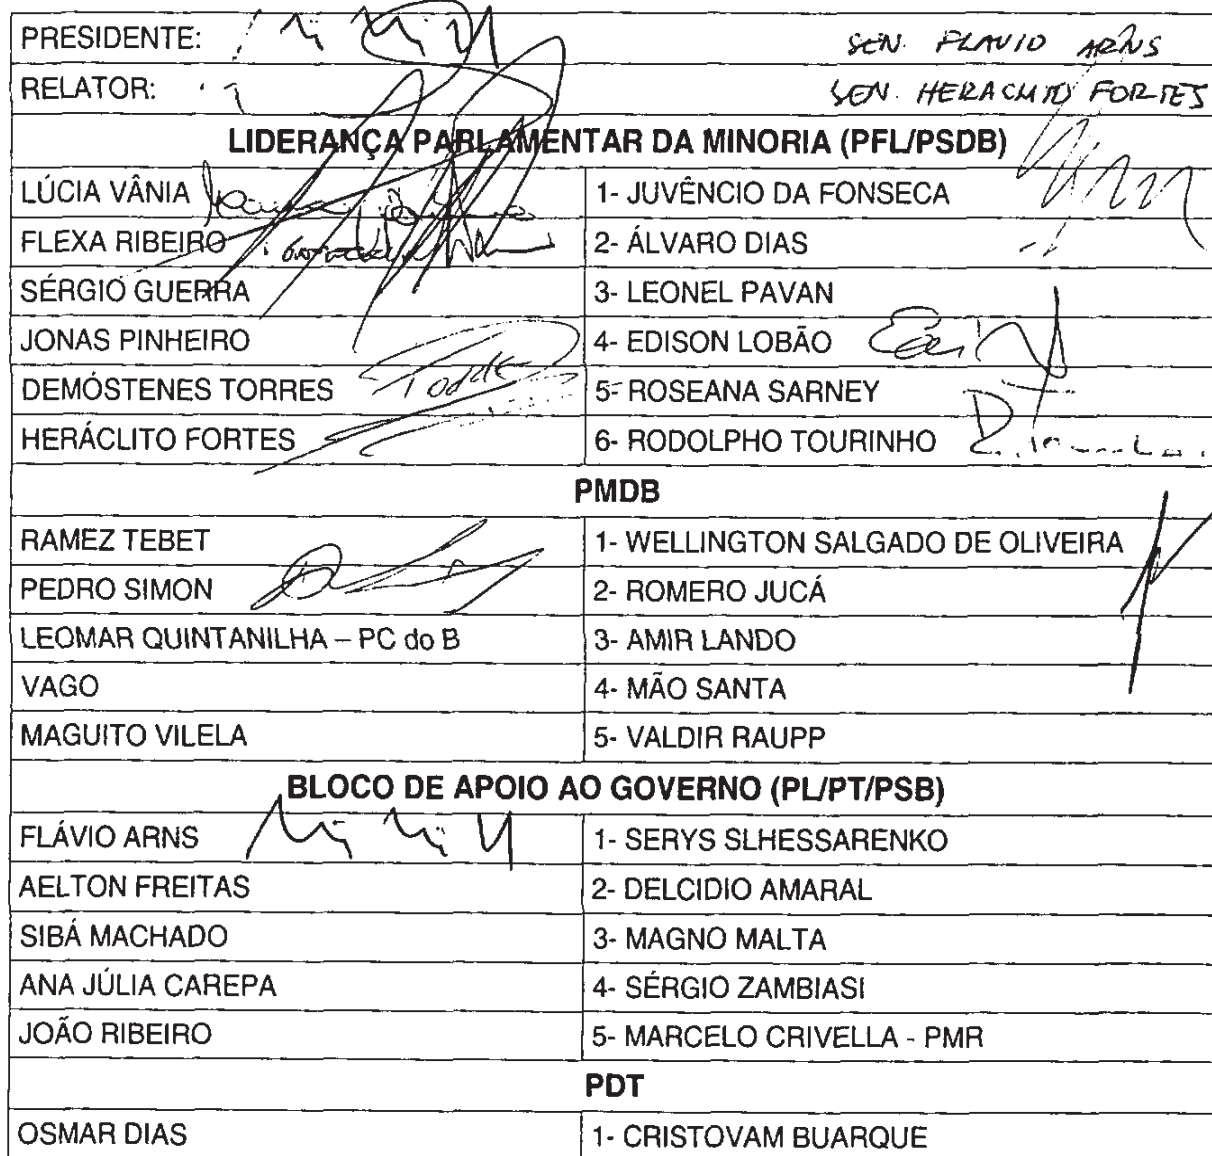 PRESIDENTE: SEN. FLAVIO ARNS
RELATOR: SEN. HERACLITO FORTES
LIDERANÇA PARLAMENTAR DA MINORIA (PFL/PSDB)
LÚCIA VÂNIA 1- JUVÊNCIO DA FONSECA
FLEXA RIBEIRO 2- ÁLVARO DIAS
SÉRGIO GUERRA 3- LEONEL PAVAN
JONAS PINHEIRO 4- EDISON LOBÃO
DEMÓSTENES TORRES 5- ROSEANA SARNEY
HERÁCLITO FORTES 6- RODOLPHO TOURINHO
PMDB
RAMEZ TEBET 1- WELLINGTON SALGADO DE OLIVEIRA
PEDRO SIMON 2- ROMERO JUCÁ
LEOMAR QUINTANILHA – PC do B 3- AMIR LANDO
VAGO 4- MÃO SANTA
MAGUITO VILELA 5- VALDIR RAUPP
BLOCO DE APOIO AO GOVERNO (PL/PT/PSB)
FLÁVIO ARNS 1- SERYS SLHESSARENKO
AELTON FREITAS 2- DELCIDIO AMARAL
SIBÁ MACHADO 3- MAGNO MALTA
ANA JÚLIA CAREPA 4- SÉRGIO ZAMBIASI
JOÃO RIBEIRO 5- MARCELO CRIVELLA - PMR
PDT
OSMAR DIAS 1- CRISTOVAM BUARQUE